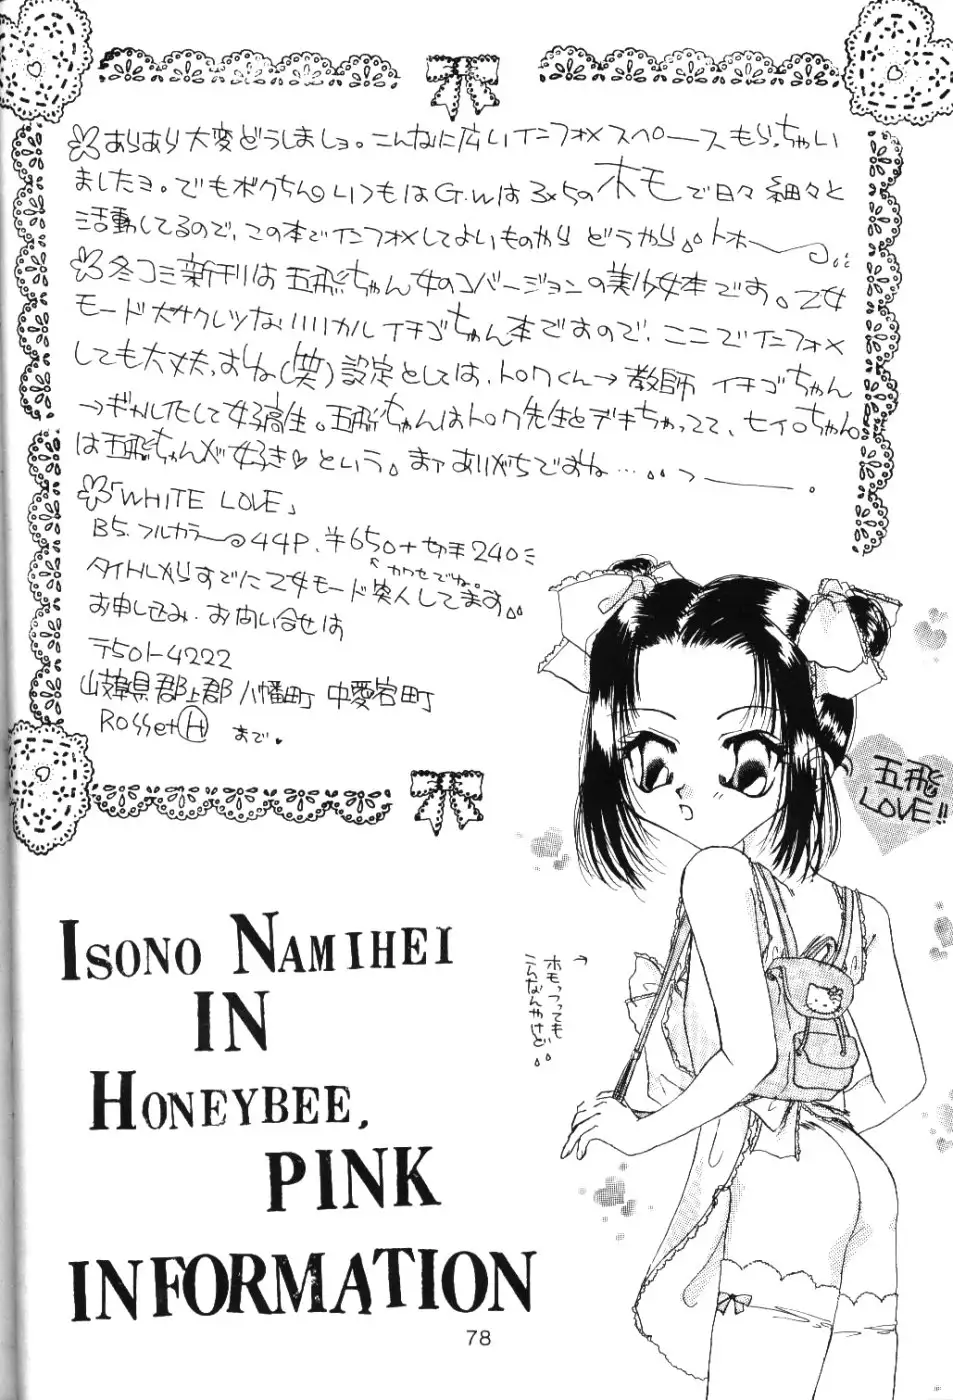 あらあら大変どうしましョ。こんなに広いインフォメスペースもらっちゃい
ましたョ。でもボクちん いつもはG.Wは3×5のホモで日々細々と
活動してるので、この本でインフォメしてよいものやら どうやら トホー
冬コミ新刊は五飛ちゃん女のコバージョンの美少女本です。乙女
モード大サクレツなリリカル イチゴちゃん本ですので、ここでインフォメ
しても大丈夫よね(笑)設定としては、トロワくん→教師 イチゴちゃん
→ギャル化して女子高生。五飛ちゃんはトロワ先生とデキちゃってて、セイロちゃん
は五飛ちゃんが好き♥という。まァありがちですね…
「WHITE LOVE」
B5.フルカラー 44P.¥650+切手240
カワセでね。
タイトルからすでに乙女モード突入してます
お申し込み・お問い合せは
〒501-4222
岐阜県郡上郡八幡町 中愛宕町
Rosset(H) まで.
五飛
LOVE!!
→ホモっつっても
こんなんやけど
ISONO NAMIHEI
IN
HONEYBEE.
PINK
INFORMATION
78